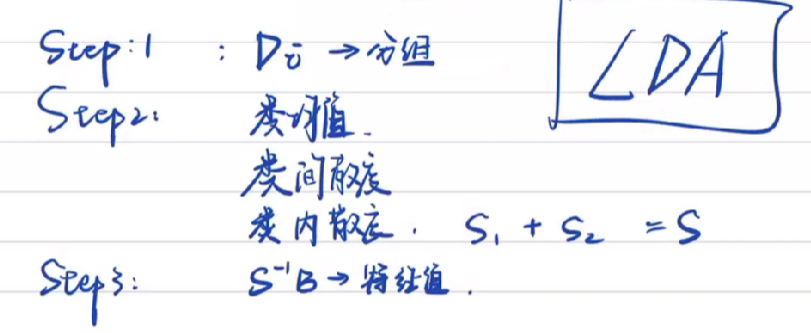 Step:1 : Di → 分组
LDA
Step2: 类均值.
类间散度
类内散度. S₁ + S₂ = S
Step3: S⁻¹B → 特征值.